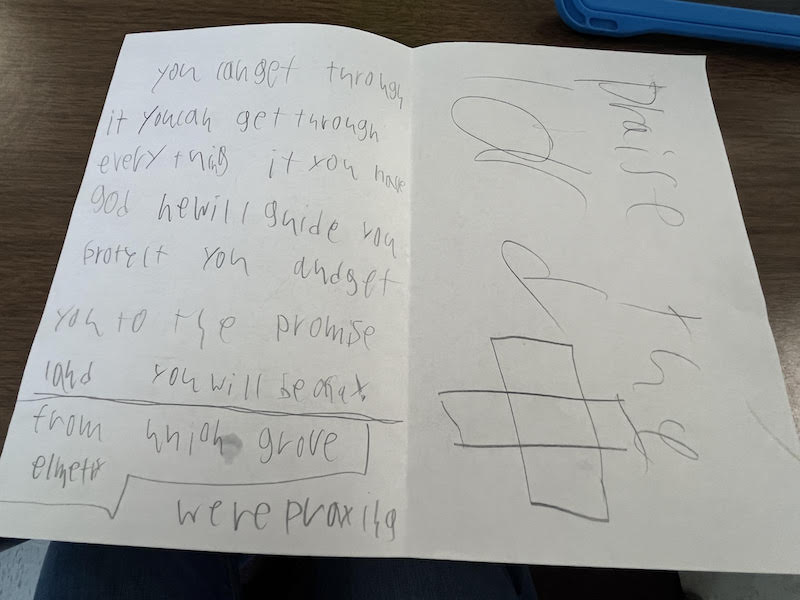 you can get through
it you can get through
every thing if you have
god he will guide you
protect you and get
you to the promise
land you will be okay
from union grove
elmetry
were praying
praise
the
lord